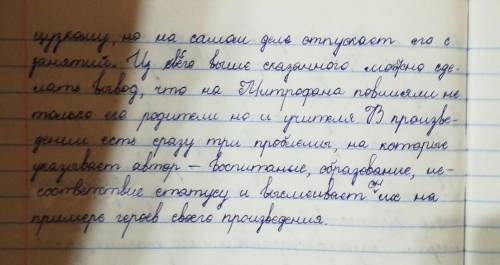 цузкому, но на самом деле отпускает его с
занятий. Из всего выше сказанного можно сде-
лать вывод, что на Митрофана повлияли не
только его родители но и учителя В произве-
дении есть сразу три проблемы, на которые
указывает автор – воспитание, образование, не-
соответствие статусу и высмеивает он их на
примере героев своего произведения.